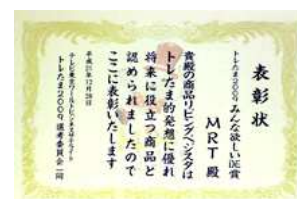 表彰状
トレたま2009みんな欲しいDE賞
MRT殿
貴殿の商品リビングペジスタは
トレたま的発想に優れ
将来に役立つ商品と
認められましたので
ここに表彰いたします
平成21年12月28日
テレビ東京ワールドビジネスサテライト
トレたま2009選考委員会一同